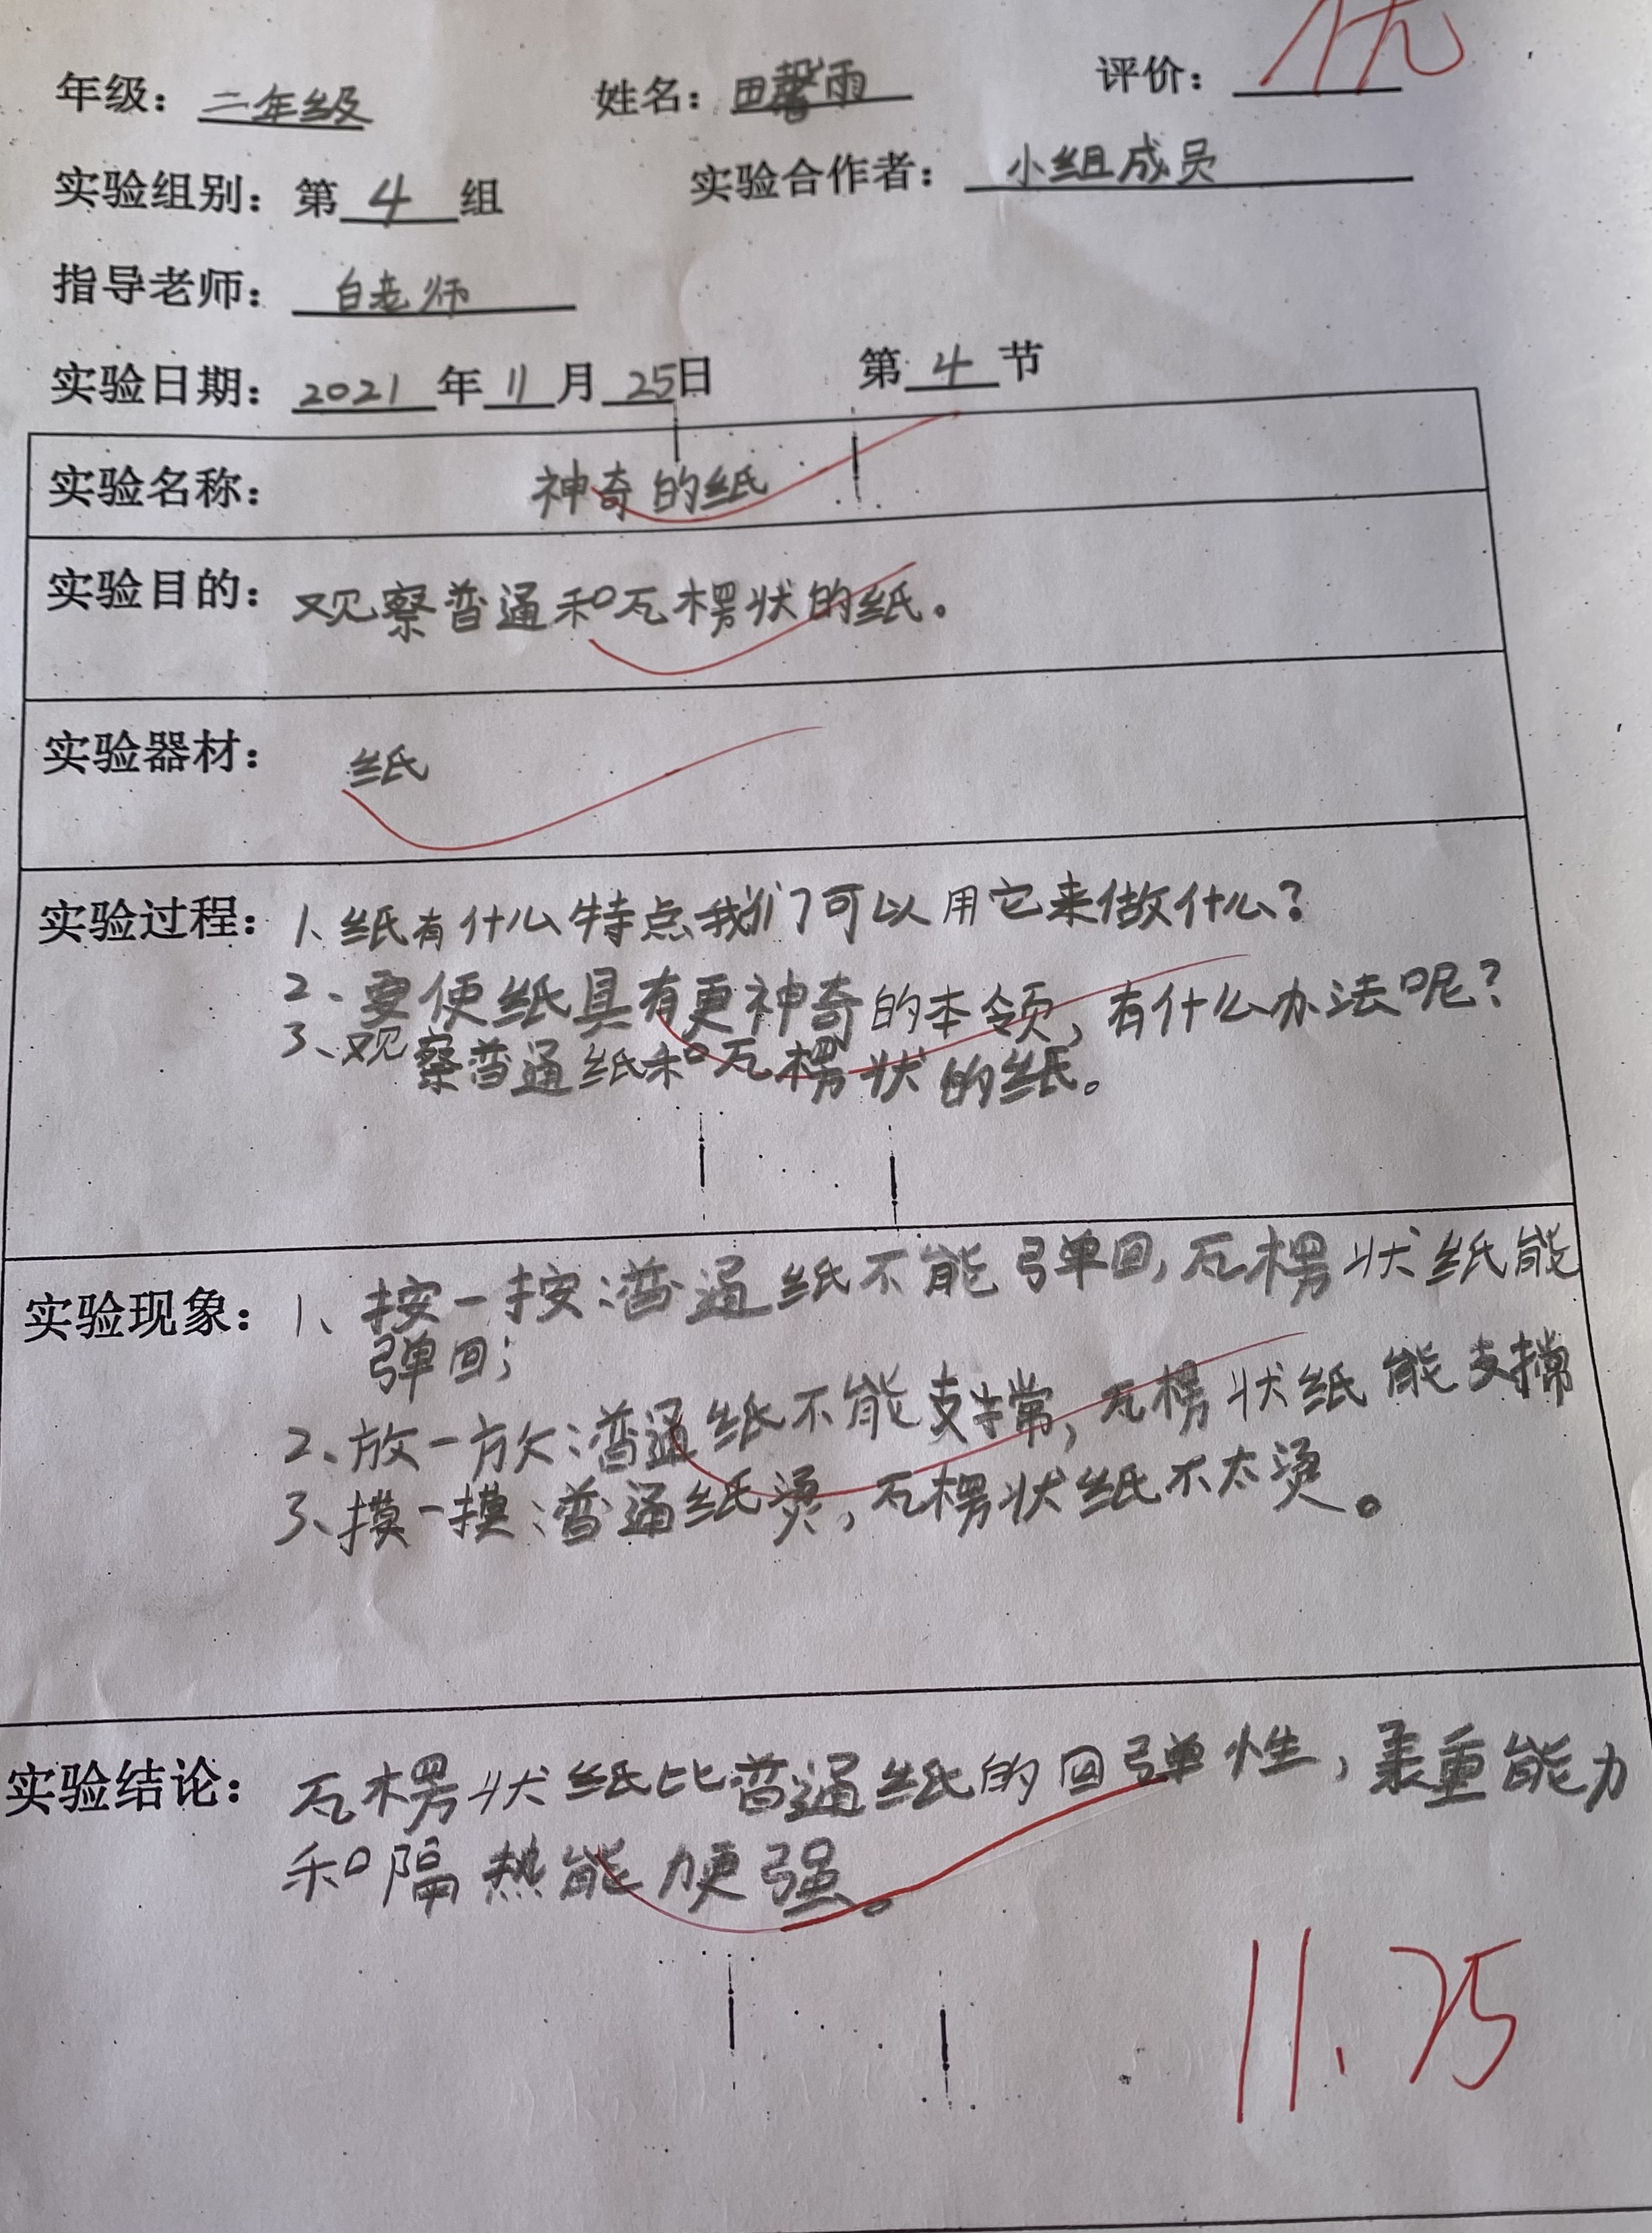 年级：二年级 姓名：田馨雨 评价：优
实验组别：第 4 组 实验合作者：小组成员
指导老师：白老师
实验日期：2021 年 11 月 25日 第 4 节
实验名称： 神奇的纸
实验目的：观察普通和瓦楞状的纸。
实验器材： 纸
实验过程：1、纸有什么特点我们可以用它来做什么？
2、要使纸具有更神奇的本领，有什么办法呢？
3、观察普通纸和瓦楞状的纸。
实验现象：1、按一按：普通纸不能弹回，瓦楞状纸能
弹回；
2、放一放：普通纸不能支撑，瓦楞状纸能支撑
3、摸一摸：普通纸烫，瓦楞状纸不太烫。
实验结论：瓦楞状纸比普通纸的回弹性，承重能力
和隔热能力更强。
11.25